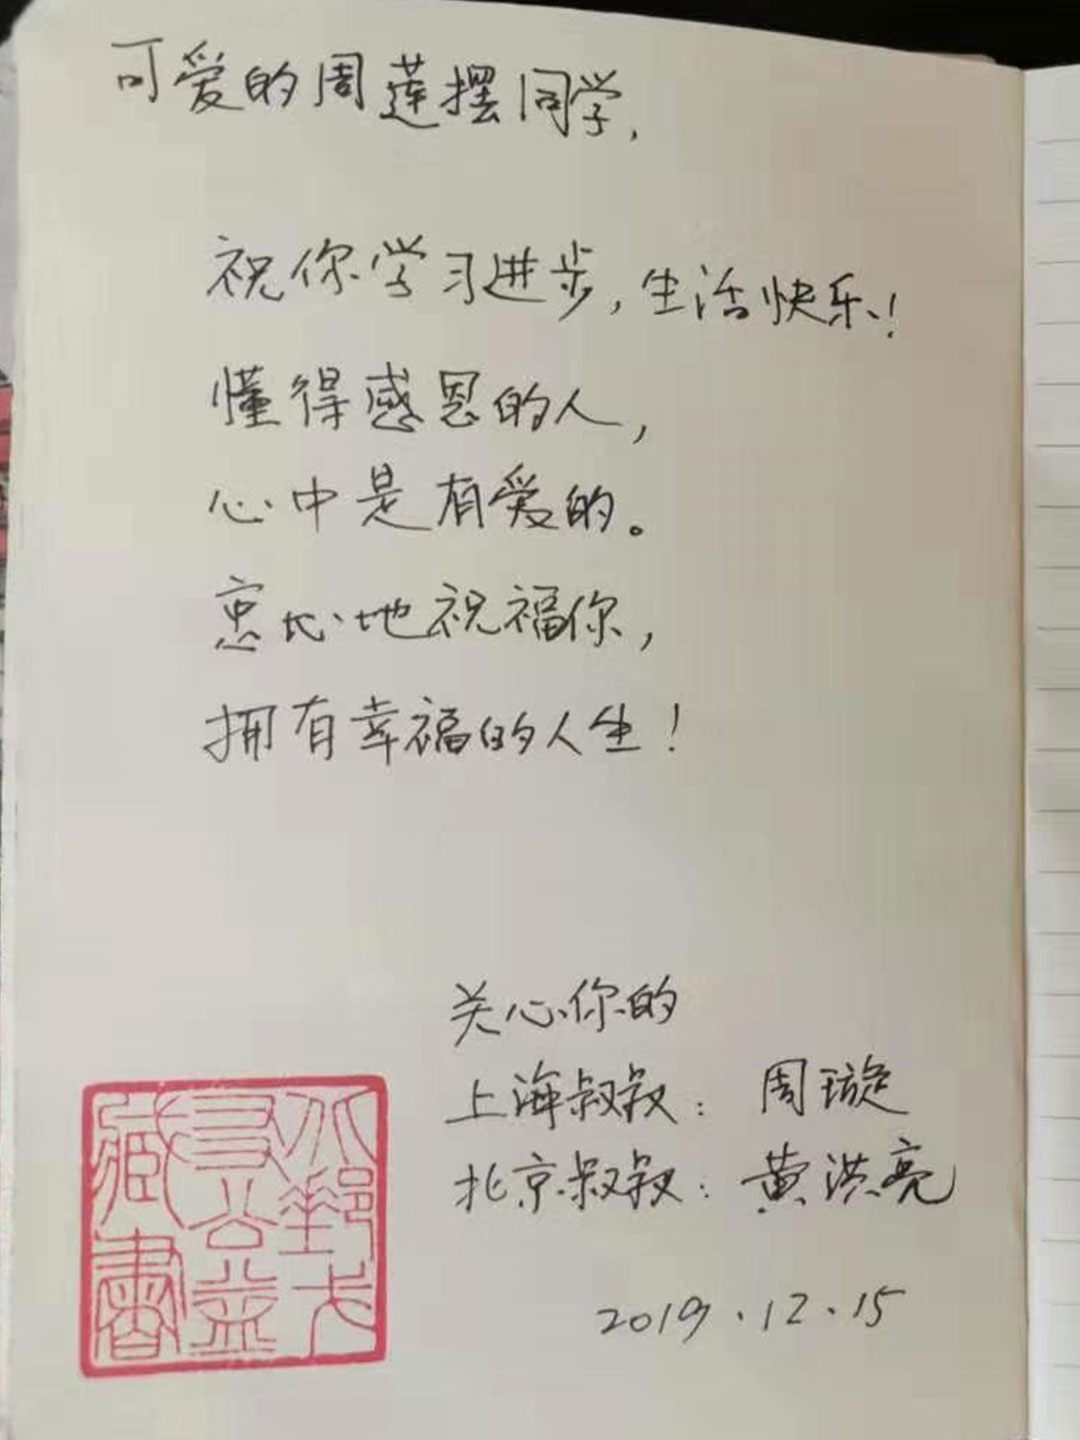 可爱的周莲摆同学,
祝你学习进步,生活快乐!
懂得感恩的人,
心中是有爱的。
衷心地祝福你,
拥有幸福的人生!
关心你的
上海叔叔: 周璇
北京叔叔: 黄洪亮
2019.12.15
公益
藏書